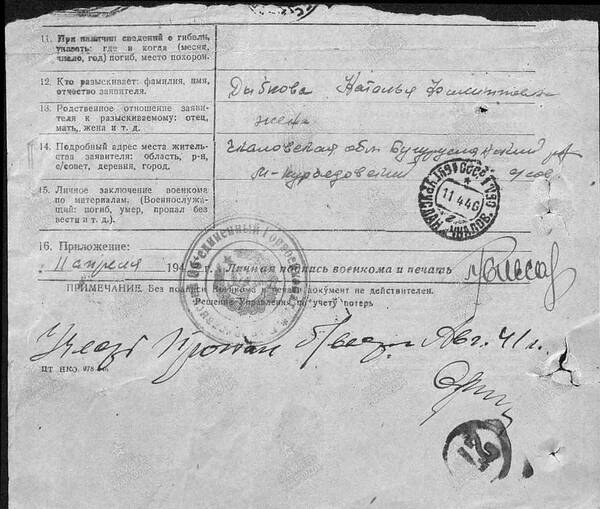 11. При наличии сведений о гибели,
указать: где и когда (месяц,
число, год) погиб, место похорон.
12. Кто разыскивает: фамилия, имя,
отчество заявителя.
Дыбкова Наталья
13. Родственное отношение заяви-
теля к разыскиваемому: отец,
мать, жена и т. д.
жена
14. Подробный адрес места жительства
заявителя: область, р-н,
с/совет, деревня, город.
Чкаловская обл Бугурусланский р-н
15. Личное заключение военкома
по материалам. (Военнослужа-
щий: погиб, умер, пропал без
вести и т. д.).
11 4 46
16. Приложение:
11 апреля 194 г. Личная подпись военкома и печать
ПРИМЕЧАНИЕ. Без подписи Военкома и печати документ не действителен.
Решение Управления по учету потерь
Пропал б/вести Авг. 41 г.
цт нко. 978